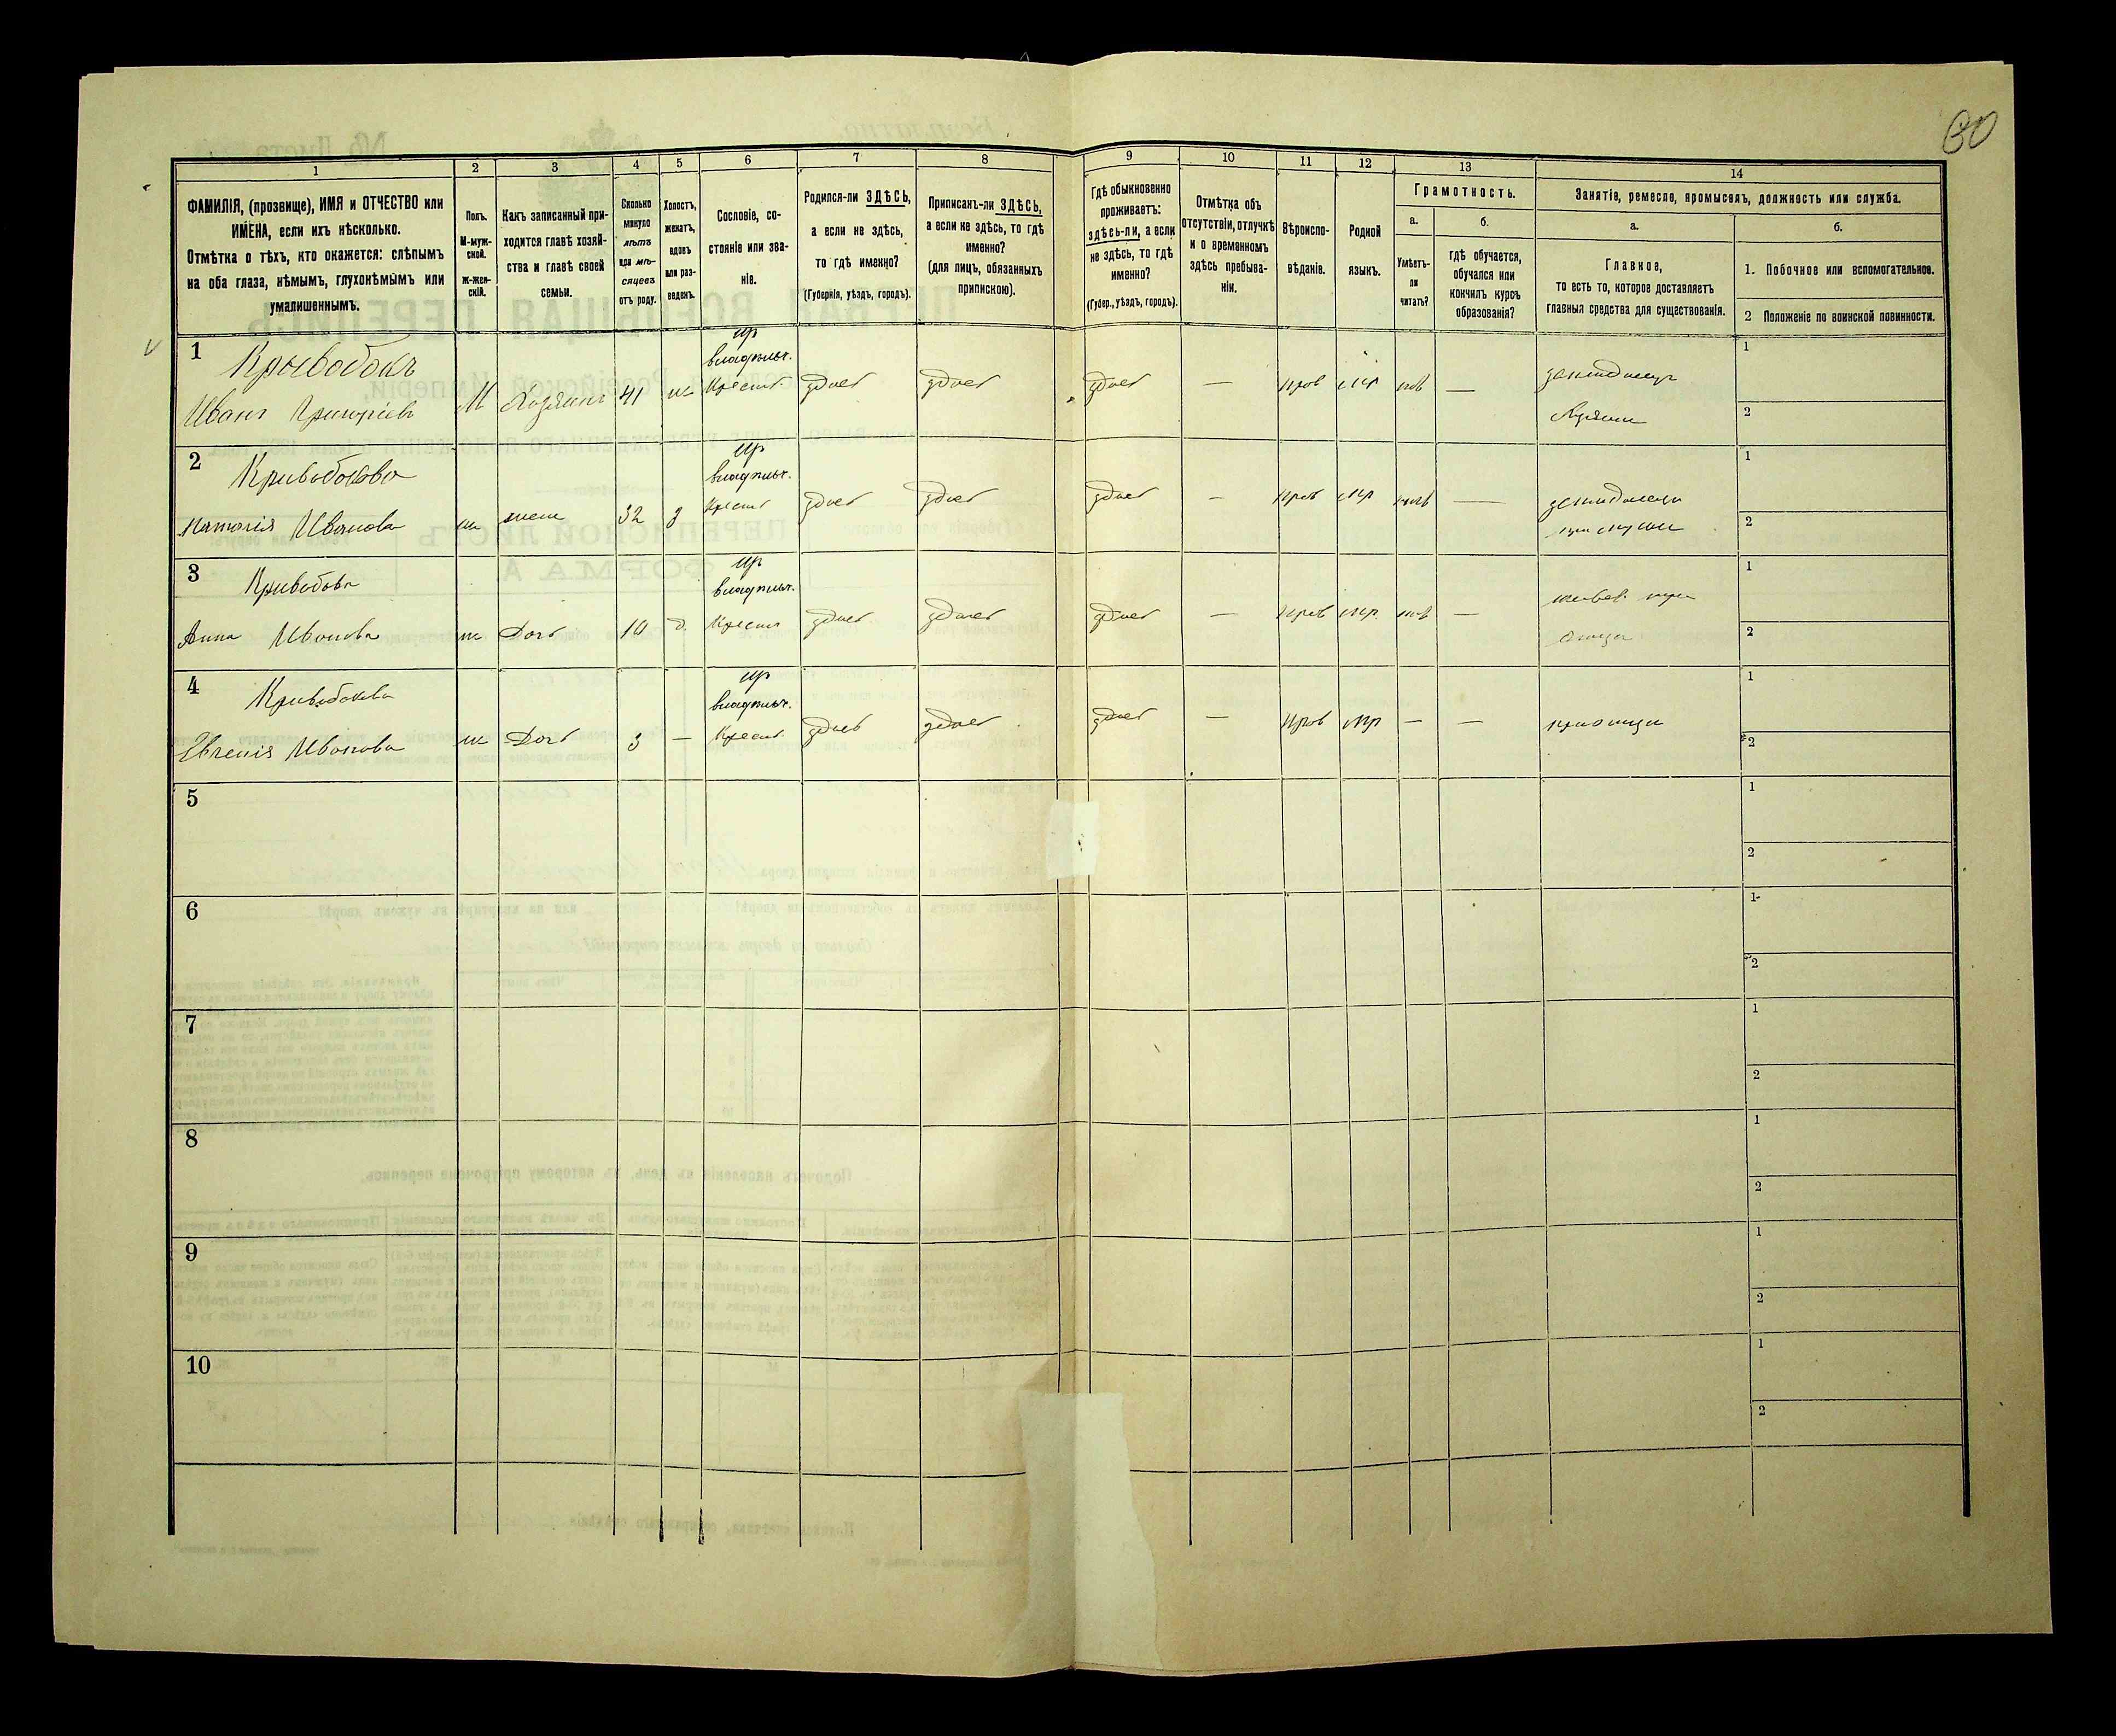 30
1 2 3 4 5 6 7 8 9 10 11 12 13 14
ФАМИЛІЯ, (прозвище), ИМЯ и ОТЧЕСТВО или
ИМЕНА, если ихъ нѣсколько.
Отмѣтка о тѣхъ, кто окажется: слѣпымъ
на оба глаза, нѣмымъ, глухонѣмымъ или
умалишеннымъ.
Полъ.
М-муж-
ской.
ж-жен-
скій.
Какъ записанный при-
ходится главѣ хозяй-
ства и главѣ своей
семьи.
Сколько
минуло
лѣтъ
или мѣ-
сяцевъ
отъ роду.
Холостъ,
женатъ,
вдовъ
или раз-
веденъ.
Сословіе, со-
стояніе или зва-
ніе.
Родился-ли ЗДѢСЬ,
а если не здѣсь,
то гдѣ именно?
(Губернія, уѣздъ, городъ).
Приписанъ-ли ЗДѢСЬ,
а если не здѣсь, то гдѣ
именно?
(для лицъ, обязанныхъ
припискою).
Гдѣ обыкновенно
проживаетъ:
здѣсь-ли, а если
не здѣсь, то гдѣ
именно?
(Губер., уѣздъ, городъ).
Отмѣтка объ
отсутствіи, отлучкѣ
и о временномъ
здѣсь пребыва-
ніи.
Вѣроиспо-
вѣданіе.
Родной
языкъ.
Грамотность.
а.
Умѣетъ-
ли
читать?
б.
гдѣ обучается,
обучался или
кончилъ курсъ
образованія?
Занятіе, ремесло, промыселъ, должность или служба.
а.
Главное,
то есть то, которое доставляетъ
главныя средства для существованія.
б.
1. Побочное или вспомогательное.
2 Положеніе по воинской повинности.
1 Крывобокъ
Иванъ Григоріевъ М Хозяинъ 41 Крест. здѣсь здѣсь здѣсь — прав — земледѣлецъ
Хозяинъ
1
2
2 Кривобокова
Наталія Ивонова ж жена 32 Крест здѣсь здѣсь здѣсь — прав —
1
2
3 Кривобова
Анна Ивонова ж Дочь 10 Крест здѣсь здѣсь здѣсь — прав —
отца
1
2
4 Кривобокова
Евгенія Ивонова ж Дочь 3 — Крест. здѣсь здѣсь здѣсь — прав — — при отцѣ
1
2
5
1
2
6
1
2
7
1
2
8
1
2
9
1
2
10
1
2